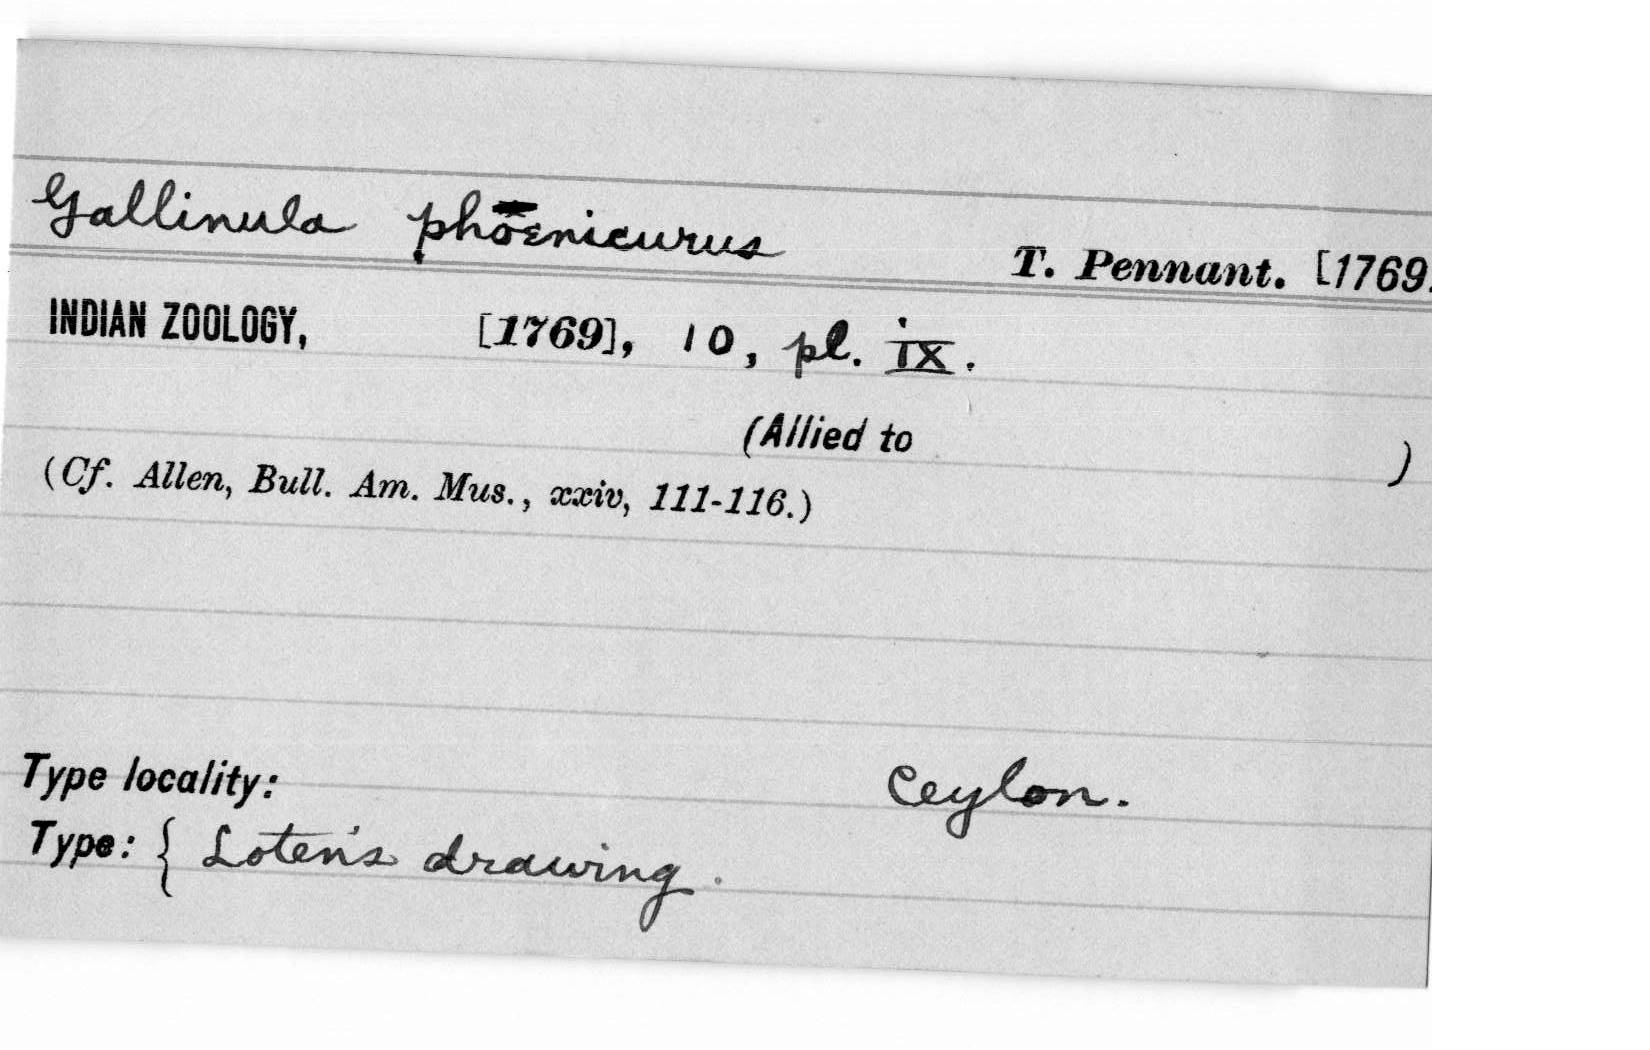 Gallinula phoenicurus T. Pennant. [1769.
INDIAN ZOOLOGY, [1769], 10, pl. ix.
(Allied to )
(Cf. Allen, Bull. Am. Mus., xxiv, 111-116.)
Type locality: Ceylon.
Type: { Loten's drawing.